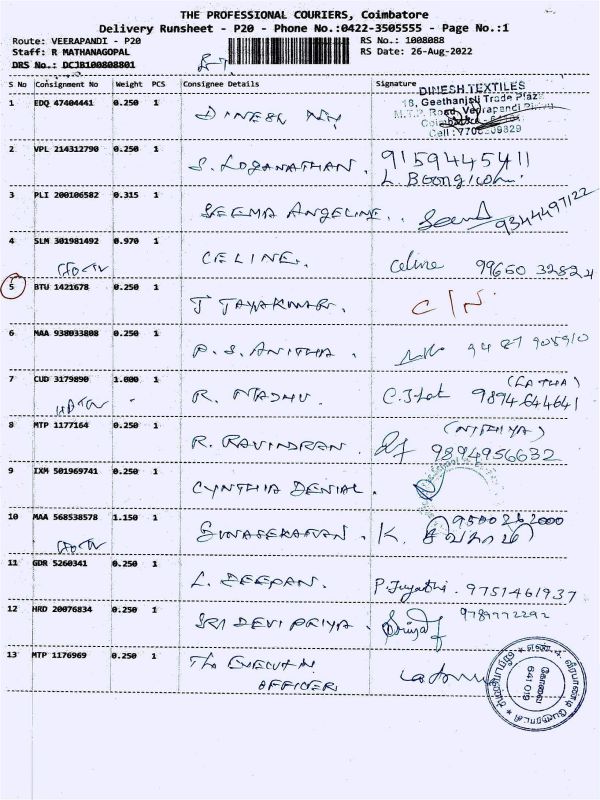 THE PROFESSIONAL COURIERS, Coimbatore
Delivery Runsheet - P20 - Phone No.:0422-3505555 - Page No.:1
Route: VEERAPANDI - P20
Staff: R MATHANAGOPAL
DRS No.: DCJB100808801
RS No.: 1008088
RS Date: 26-Aug-2022
S No Consignment No Weight PCS Consignee Details Signature
DINESH TEXTILES
18, Geethanjali Trade Plaz
M.T.P. Road, Veerapandi
1 EDQ 47404441 0.250 1 DINESH
2 VPL 214312790 0.250 1 S. LOGANATHAN. 9159445411
3 PLI 200106582 0.315 1 SEEMA ANGELINE.. 9344497122
4 SLM 301981492 0.970 1 CELINE. Celine 99650 32824
5 BTU 1421678 0.250 1 J JAYAKUMAR. C/N
6 MAA 938033808 0.250 1 P.S. ANITHA.
7 CUD 3179890 1.000 1 R. MADHU. (LATHA)
9894644641
8 MTP 1177164 0.250 1 R. RAVINDRAN. (NITHYA)
9894956632
9 IXM 501969741 0.250 1 CYNTHIA DENIAL.
10 MAA 568538578 1.150 1 GUNASEKARAN. K. 9500262000
11 GDR 5260341 0.250 1 L. DEEPAN. 9751461937
12 HRD 20076834 0.250 1 SRI DEVI PRIYA.
13 MTP 1176969 0.250 1 The EXECUTIN
OFFICER
கோவை
641 019